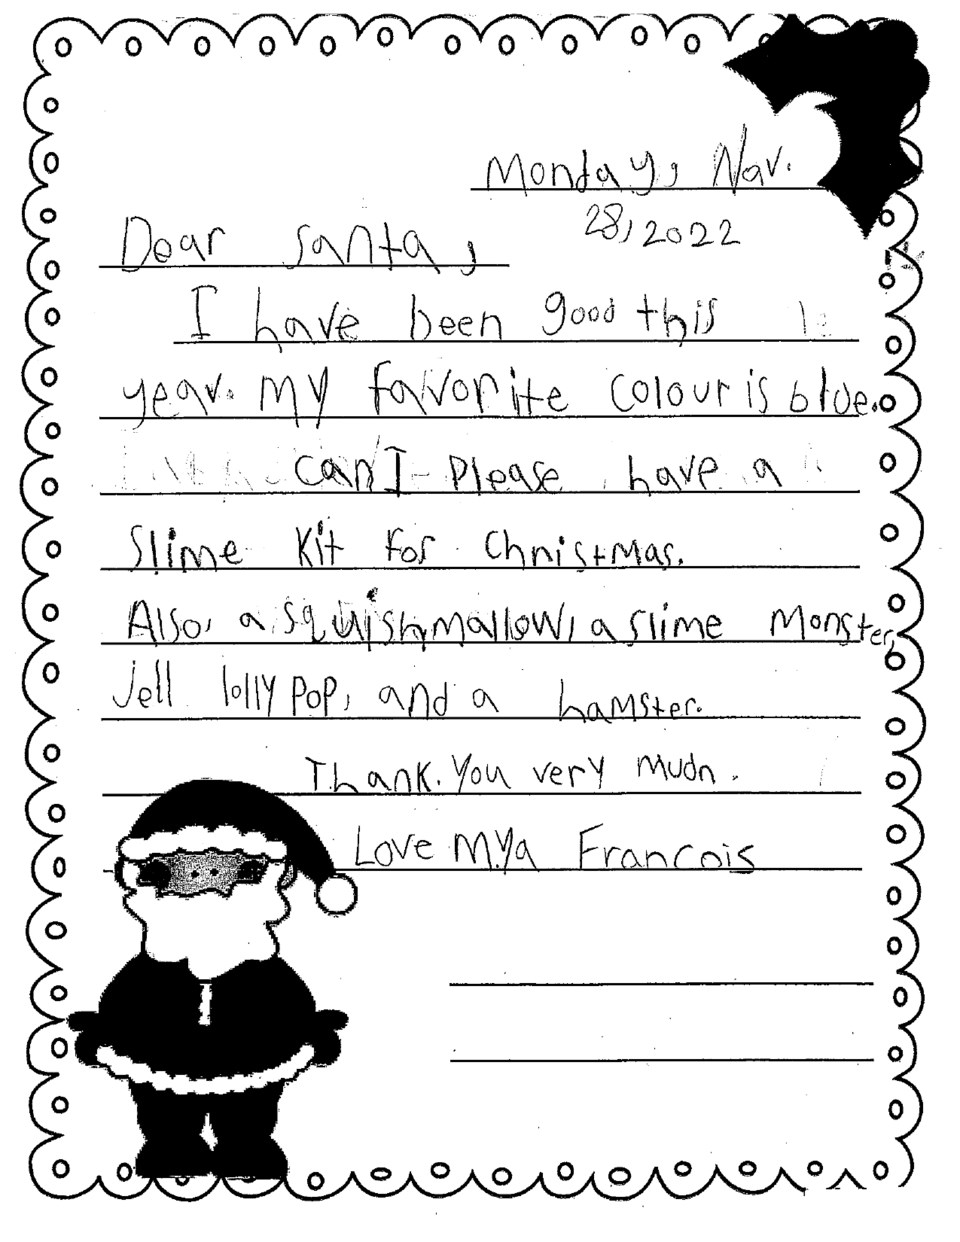 Monday, Nav.
28, 2022
Dear santa,
I have been good this
year. My favorite colour is blue.
can I please have a
Slime Kit for Christmas.
Also, a squishmallow, a slime Monster,
Jell lolly pop, and a hamster.
Thank. You very mudn.
Love Mya Francois